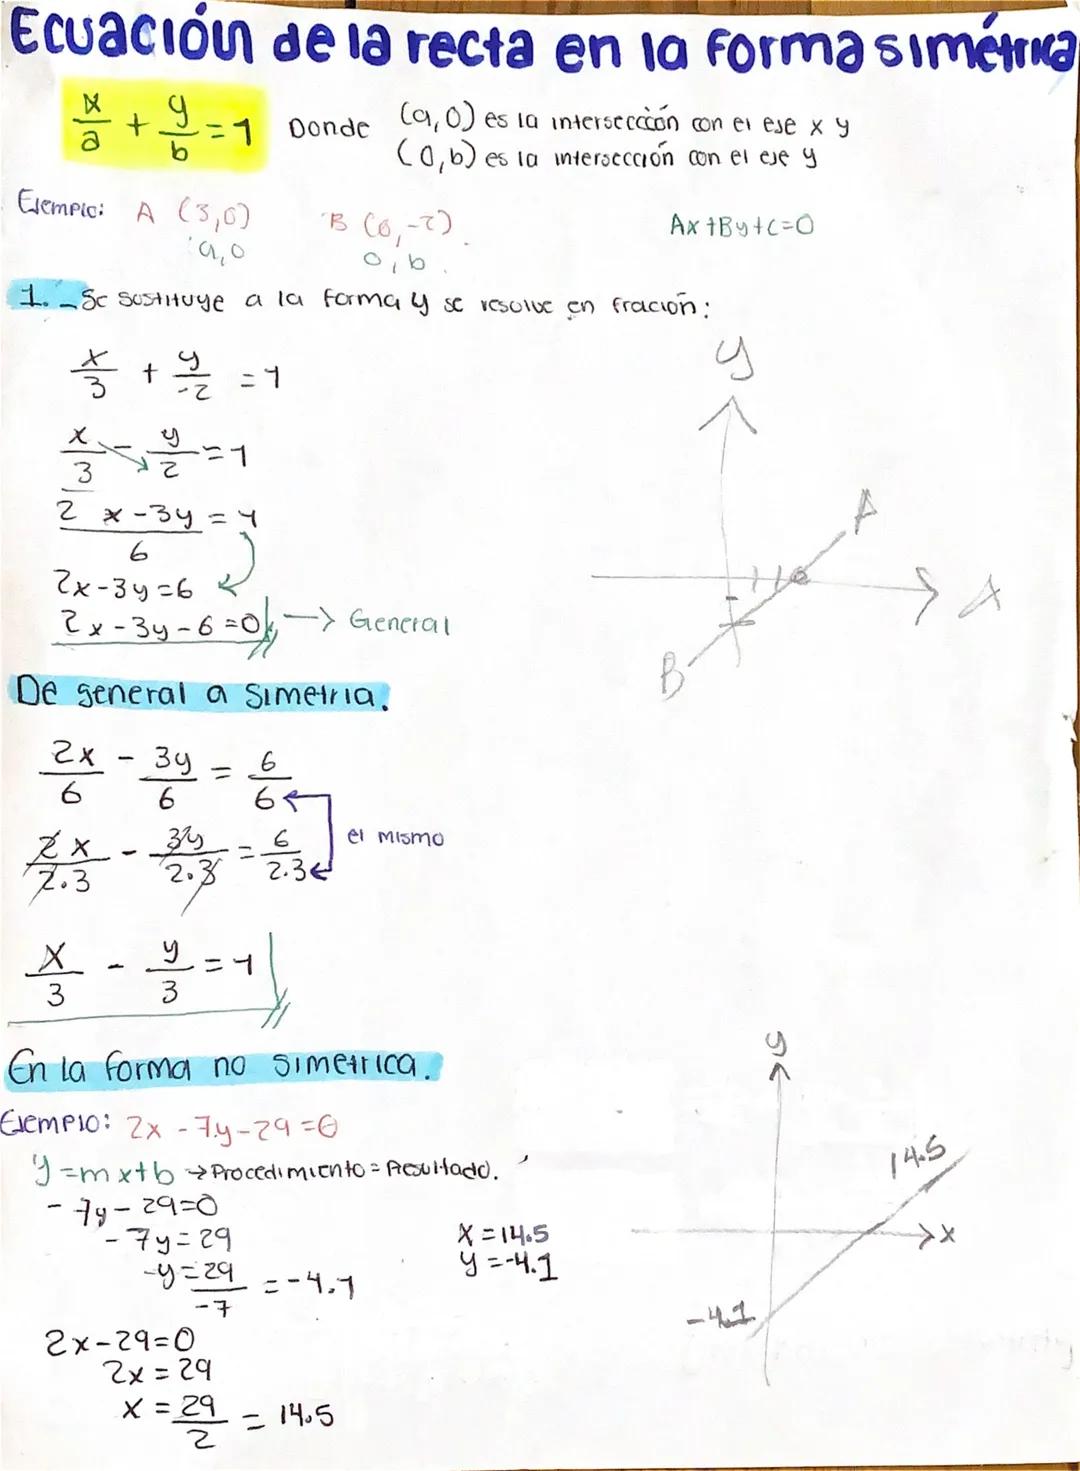 Ecuación de la recta en la forma simétrica
x/a + y/b = 1 Donde (a,0) es la intersección con el eje x y
(0,b) es la intersección con el eje y
Ejemplo: A (3,0) B (0,-2). Ax+By+C=0
a,0 0,b.
1._ Se sustituye a la forma y se resolve en fración:
x/3 + y/-2 = 1
x/3 - y/2 = 1
2x-3y/6 = 1
2x-3y=6
2x-3y-6=0 → General
y
A
x
B
De general a simetria.
2x/6 - 3y/6 = 6/6
el mismo
2x/2.3 - 3y/2.3 = 6/2.3
x/3 - y/3 = 1
En la forma no simetrica.
Ejemplo: 2x-7y-29=0
y=mx+b → Procedimiento = Resultado.
-7y-29=0
-7y=29
-y=29/-7 = -4.1
x=14.5
y=-4.1
2x-29=0
2x=29
x=29/2 = 14.5
y
14.5
x
-4.1